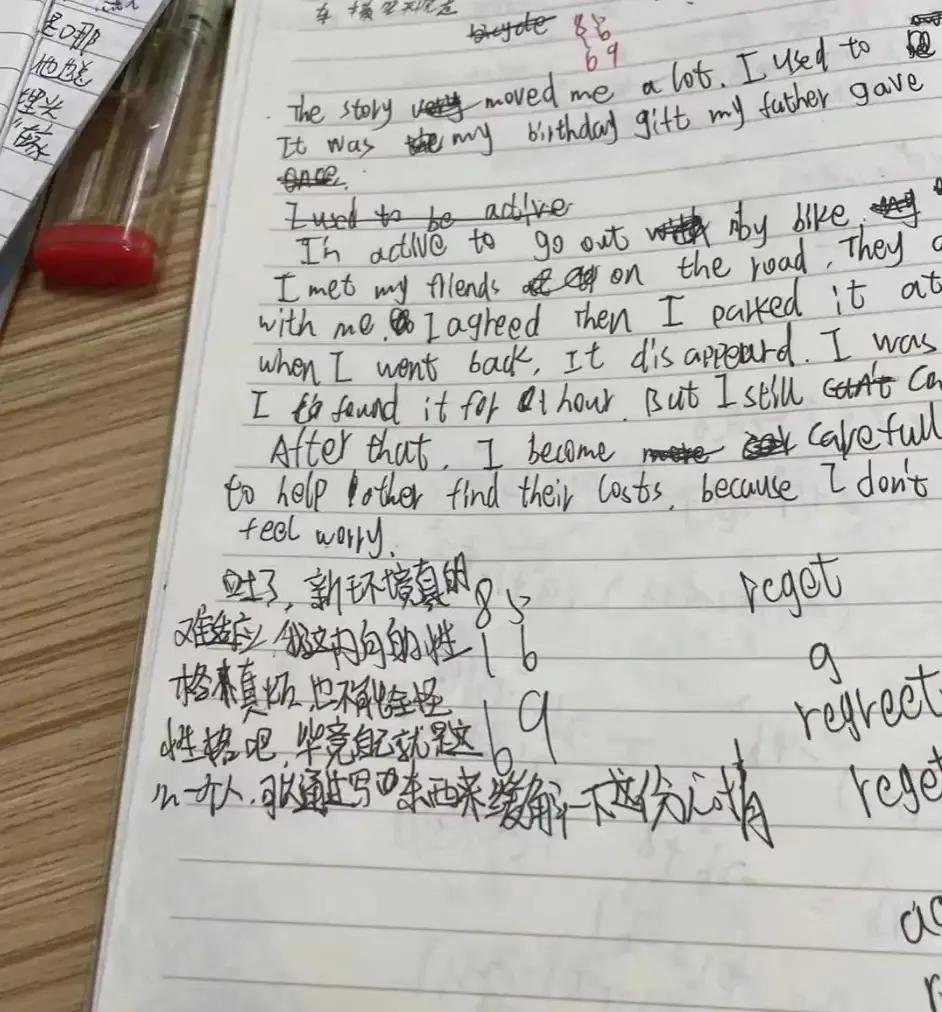 是哪
他说
埋头
bicycle 86
69
The story very moved me a lot. I used to
It was the my birthday gift my father gave
once.
I used to be active
I'm active to go out with by bike.
I met my friends on the road. They
with me. I agreed Then I parked it at
when I went back, It disappeard. I was
I found it for 1 hour. But I still can't Can
After that, I become more carefull
to help other find their Losts, because I don't
feel worry.
吐了，新环境真的 85 reget
难适应，我这内向的性 16 g
格来真烦，也不能全怪 regrect
性格吧，毕竟自己就是这 69
么一个人，可以通过写东西来缓解一下这份心情 rege